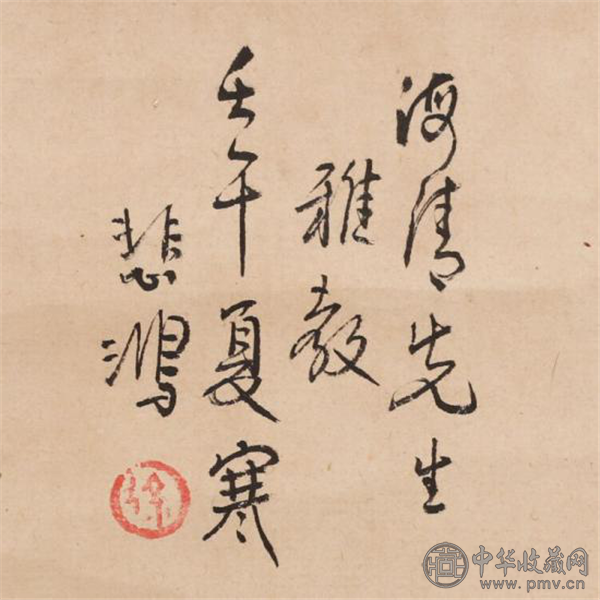 海清先生
雅教
壬午夏寒
悲鸿
徐
中华收藏网
www.pmv.cn